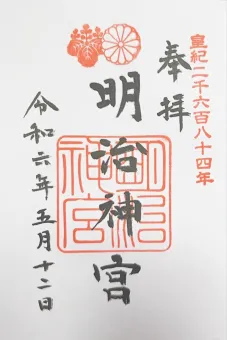 皇紀二千六百八十四年
奉拝
明治神宮
明治神宮
令和六年五月十二日